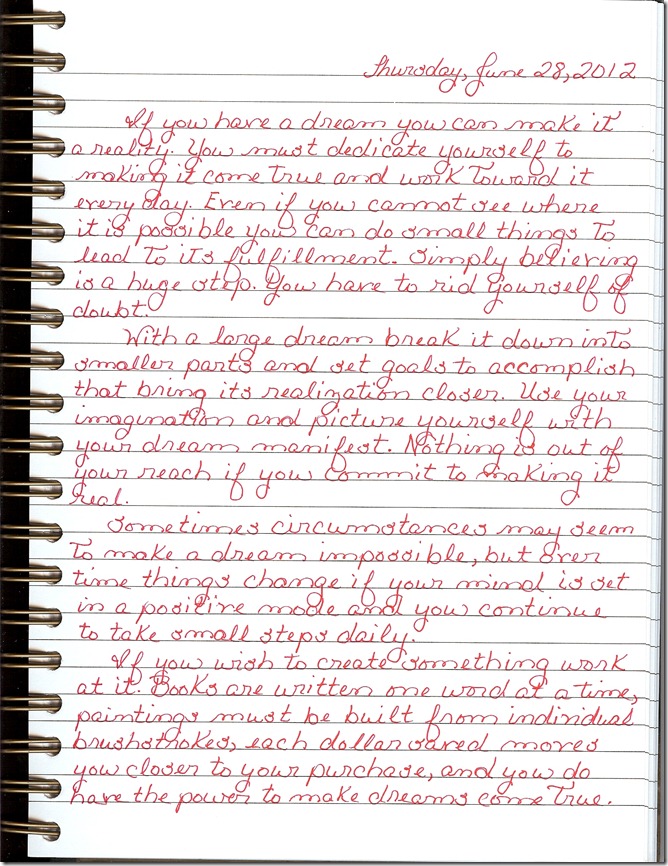 Thursday, June 28, 2012
If you have a dream you can make it
a reality. You must dedicate yourself to
making it come true and work toward it
every day. Even if you cannot see where
it is possible you can do small things to
lead to its fulfillment. Simply believing
is a huge step. You have to rid yourself of
doubt.
With a large dream break it down into
smaller parts and set goals to accomplish
that bring its realization closer. Use your
imagination and picture yourself with
your dream manifest. Nothing is out of
your reach if you commit to making it
real.
Sometimes circumstances may seem
to make a dream impossible, but over
time things change if your mind is set
in a positive mode and you continue
to take small steps daily.
If you wish to create something work
at it. Books are written one word at a time,
paintings must be built from individual
brushstrokes, each dollar saved moves
you closer to your purchase, and you do
have the power to make dreams come true.